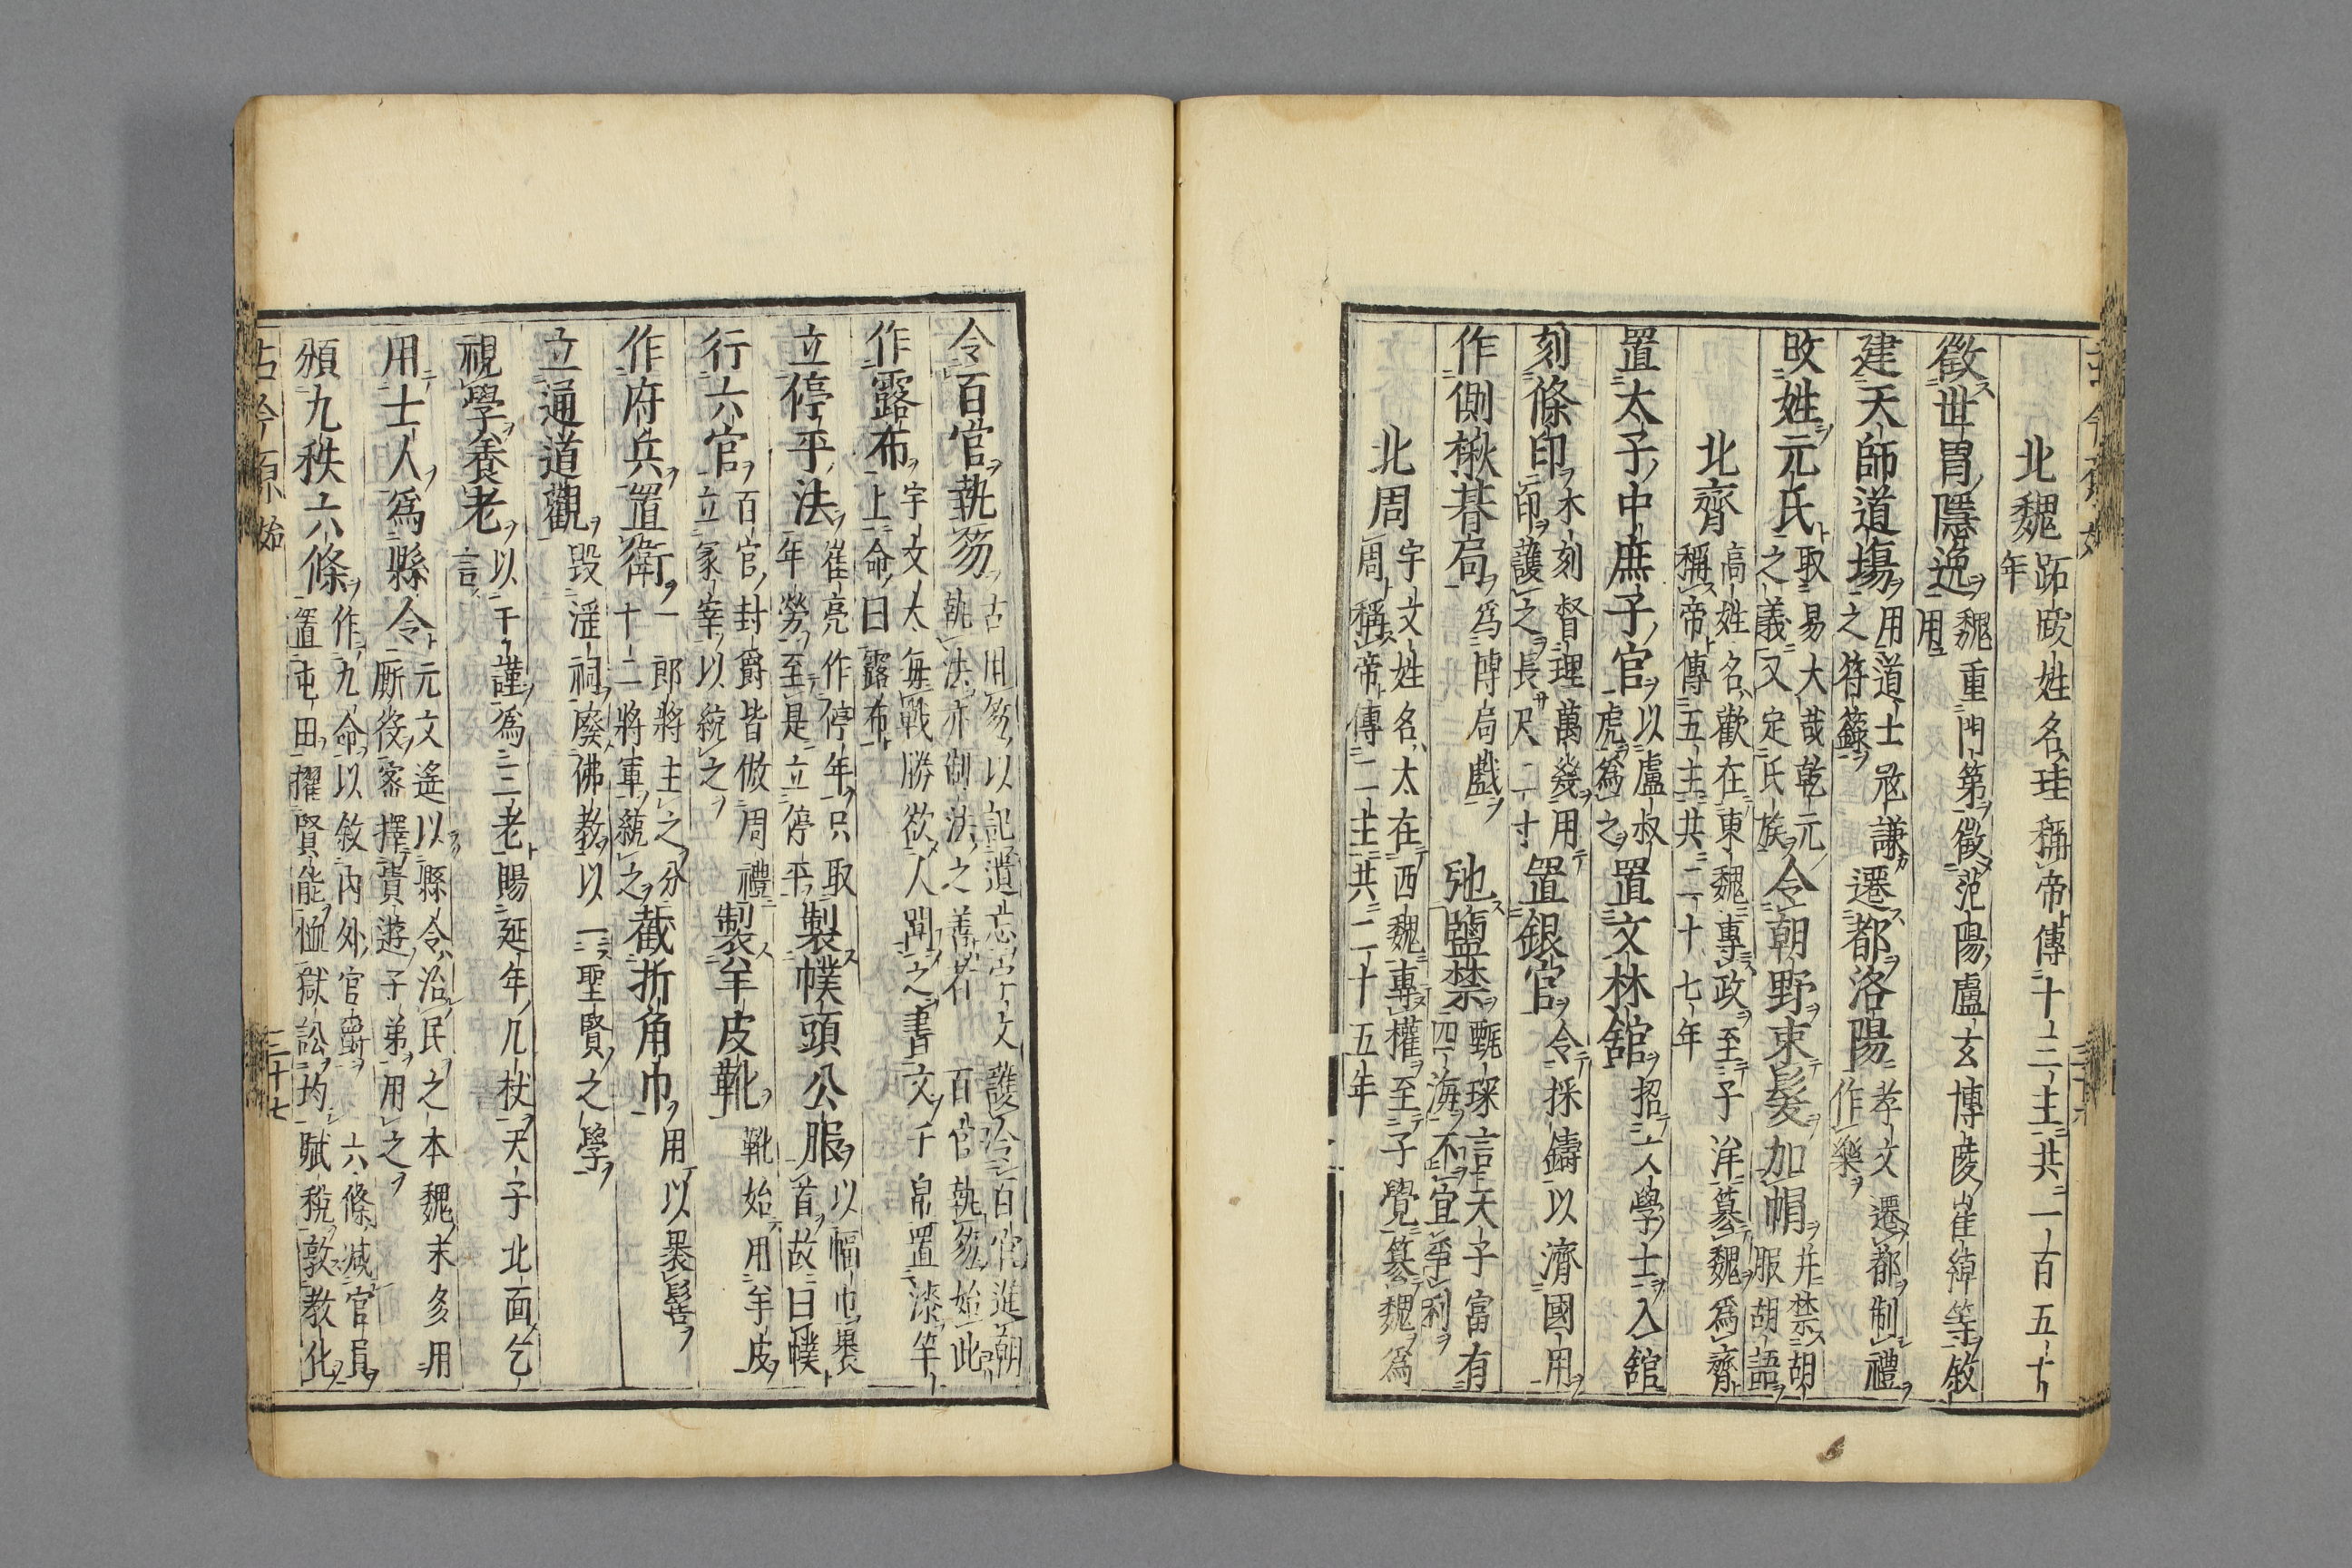 北魏 跖跋姓名珪稱帝傳十三主共一百五十年
徵世胄隱逸 魏重門第徵范陽盧玄博陵崔綽等敘用
建天師道塲 用道士冦謙之符籙 遷都洛陽 孝文遷都制禮作樂
改姓元氏 取易大哉乾元之義又定氏族 令朝野束髮加帽 并禁胡服胡語
北齊 高姓名歡在東魏專政至子洋簒魏爲齊稱帝傳五主共二十七年
置太子中庶子官 以盧叔虎爲之 置文林舘 招文學士入舘
刻條印 木刻督理萬幾用印護之長尺二寸 置銀官 令採鑄以濟國用
作側楸碁局 爲博局戲 弛鹽禁 甄琛言天子富有四海不宜爭利
北周 宇文姓名太在西魏專權至子覺簒魏爲周稱帝傳二主共二十五年
令百官執笏 古用笏以記遺忘宇文護令百官進朝執笏 法亦制法之善者 百官執笏始此
作露布 宇文太每戰勝欲人聞之書文于帛置漆竿上命曰露布
立停年法 崔亮作停年只取年勞至是立停年 製幞頭公服 以幅巾裹首故曰幞
行六官 百官封爵皆倣周禮立冢宰以統之 製羊皮靴 靴始用羊皮
作府兵置衛 一郎將主之分十二將軍統之 截折角巾 用以裹髻
立通道觀 毀淫祠廢佛教以一聖賢之學
視學養老 以于謹爲三老賜延年几杖天子北面乞言
用士人爲縣令 元文遙以縣令治民之本魏末多用厮役密擇貴遊子弟用之
頒九秩六條 作九命以敘內外官爵 六條减官員置屯田擢賢能恤獄訟均賦稅敦教化
古今原始
三十七